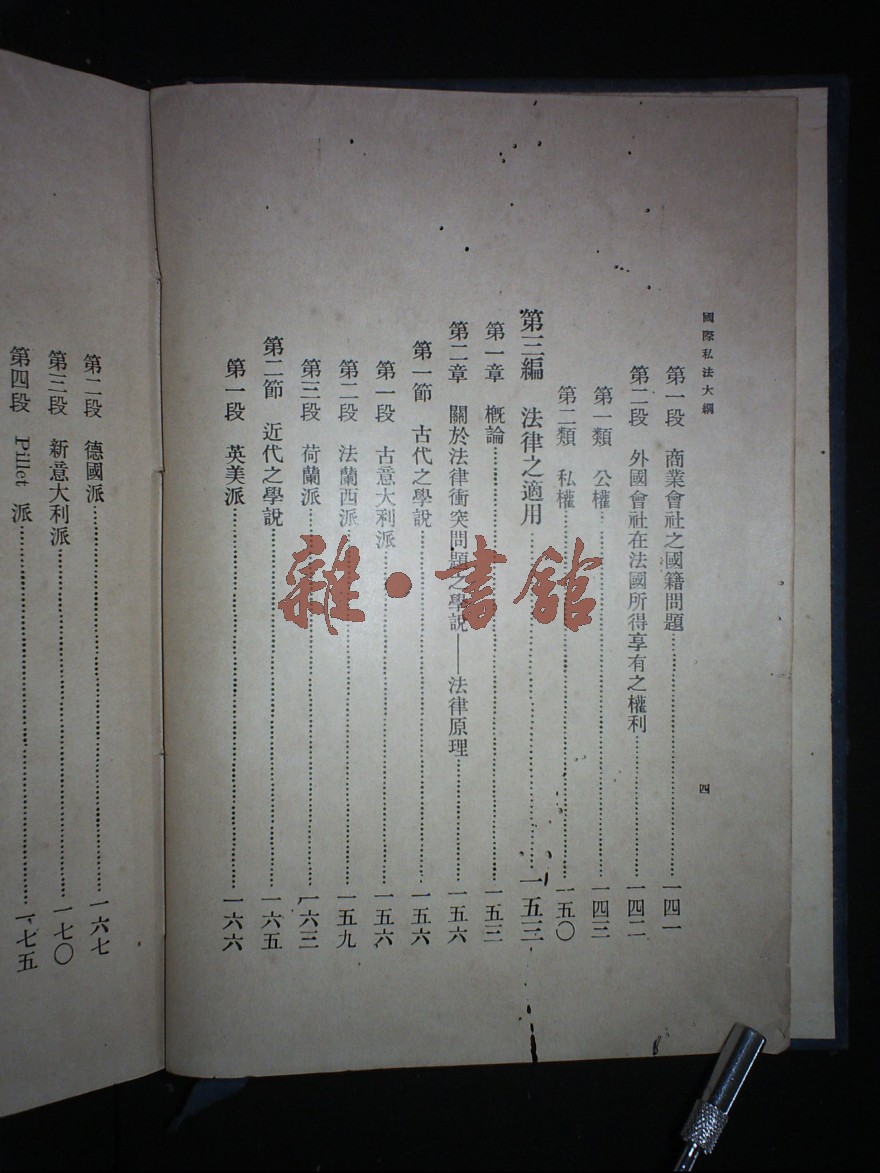 國際私法大綱
四
第一段 商業會社之國籍問題……一四一
第二段 外國會社在法國所得享有之權利……一四二
第一類 公權……一四三
第二類 私權……一五〇
第三編 法律之適用……一五三
第一章 概論……一五三
第二章 關於法律衝突問題之學說——法律原理……一五六
第一節 古代之學說……一五六
第一段 古意大利派……一五六
第二段 法蘭西派……一五九
第三段 荷蘭派……一六三
第二節 近代之學說……一六五
第一段 英美派……一六六
第二段 德國派……一六七
第三段 新意大利派……一七〇
第四段 Pillet 派……一七五
雜·書館